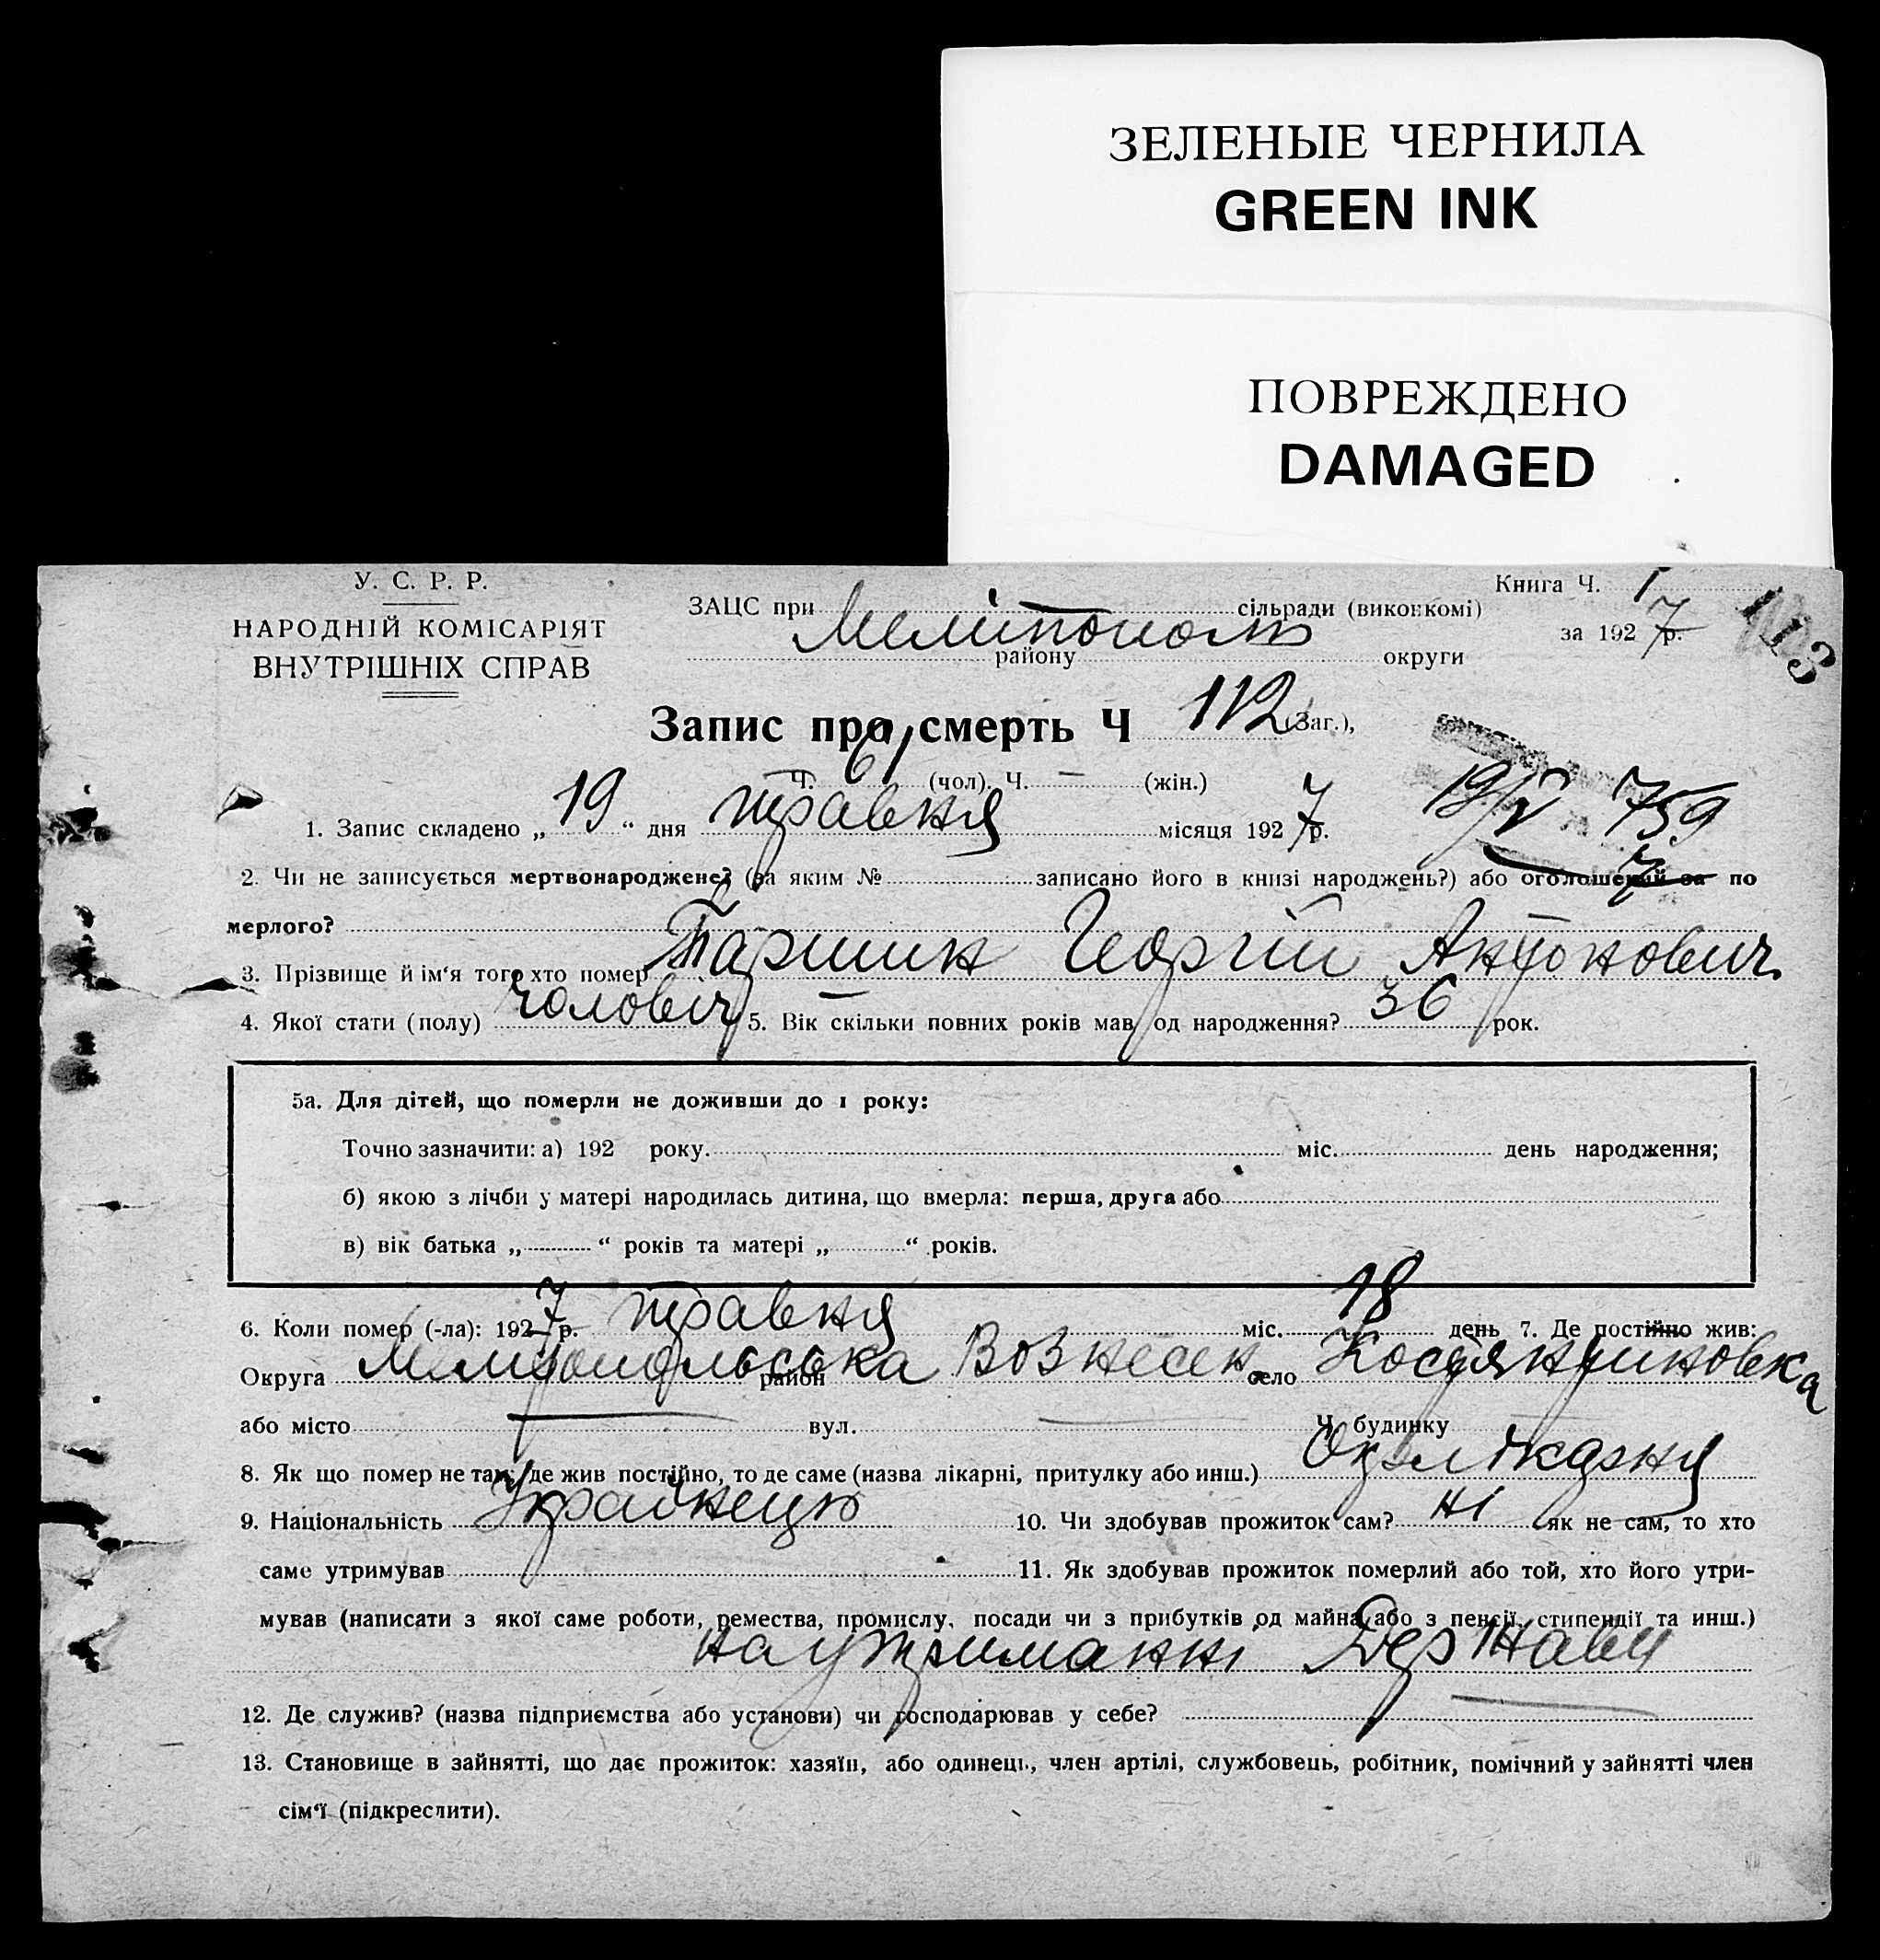 ЗЕЛЕНЫЕ ЧЕРНИЛА
GREEN INK
ПОВРЕЖДЕНО
DAMAGED
У. С. Р. Р.
НАРОДНІЙ КОМІСАРІЯТ
ВНУТРІШНІХ СПРАВ
Книга Ч. 1
113
ЗАЦС при Мелітополь сільради (виконкомі)
за 1927 р.
району округи
Запис про смерть Ч 112 (Заг.),
Ч. 61 (чол). Ч. — (жін.)
1. Запис складено „19“ дня травня місяця 1927 р.
19/V 759
2. Чи не записується мертвонароджене? (за яким № записано його в книзі народжень?) або оголошений за по
мерлого?
3. Прізвище й ім‘я того хто помер Паршин Георгій Антонович
4. Якої стати (полу) чоловіч 5. Вік скільки повних років мав од народження? 36 рок.
5а. Для дітей, що померли не доживши до 1 року:
Точно зазначити: а) 192 року. міс. день народження;
б) якою з лічби у матері народилась дитина, що вмерла: перша, друга або
в) вік батька „ “ років та матері „ “ років.
6. Коли помер (-ла): 1927 р. травня міс. 18 день 7. Де постійно жив:
Округа Мелітопольська район Вознесен. село Костянтиновка
або місто — вул. Ч. будинку
8. Як що помер не там, де жив постійно, то де саме (назва лікарні, притулку або инш.) лікарня
9. Національність Українець 10. Чи здобував прожиток сам? ні як не сам, то хто
саме утримував 11. Як здобував прожиток померлий або той, хто його утри-
мував (написати з якої саме роботи, ремества, промислу, посади чи з прибутків од майна або з пенсії, стипендії та инш.)
на утриманні Держави
12. Де служив? (назва підприємства або установи) чи господарював у себе? —
13. Становище в зайнятті, що дає прожиток: хазяїн, або одинець, член артілі, службовець, робітник, помічний у зайнятті член
сім‘ї (підкреслити).